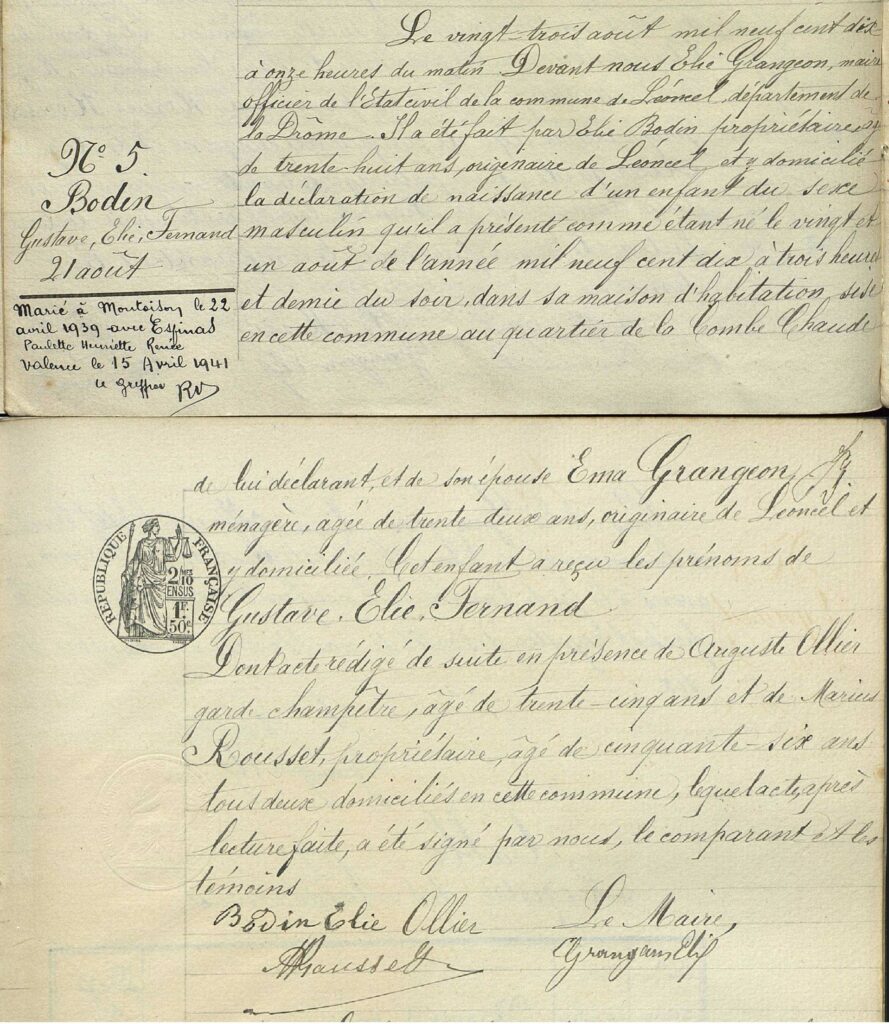 N° 5.
Bodin
Gustave, Elie, Fernand
21 août
Marié à Montoison le 22
avril 1939 avec Espinas
Paulette Henriette Renée
Valence le 15 Avril 1941
le greffier
Le vingt-trois août mil neuf cent dix
à onze heures du matin Devant nous Elie Grangeon, maire
officier de l'Etat civil de la commune de Léoncel, département de
la Drôme. Il a été fait par Elie Bodin propriétaire, âgé
de trente-huit ans, originaire de Léoncel, et y domicilié
la déclaration de naissance d'un enfant du sexe
masculin qu'il a présenté comme étant né le vingt et
un août de l'année mil neuf cent dix à trois heures
et demie du soir, dans sa maison d'habitation sise
en cette commune au quartier de la Combe Chaude
de lui déclarant, et de son épouse Ema Grangeon,
ménagère, agée de trente deux ans, originaire de Léoncel et
y domiciliée. Cet enfant a reçu les prénoms de
Gustave, Elie, Fernand
Dont acte rédigé de suite en présence de Auguste Ollier
garde-champêtre, âgé de trente-cinq ans et de Marius
Rousset, propriétaire, âgé de cinquante-six ans
tous deux domiciliés en cette commune, lequel acte, après
lecture faite, a été signé par nous, le comparant et les
témoins
Bodin Elie Ollier Le Maire,
Rousset Grangeon Elie
RÉPUBLIQUE FRANÇAISE
2/10
EN SUS
1F.
50c